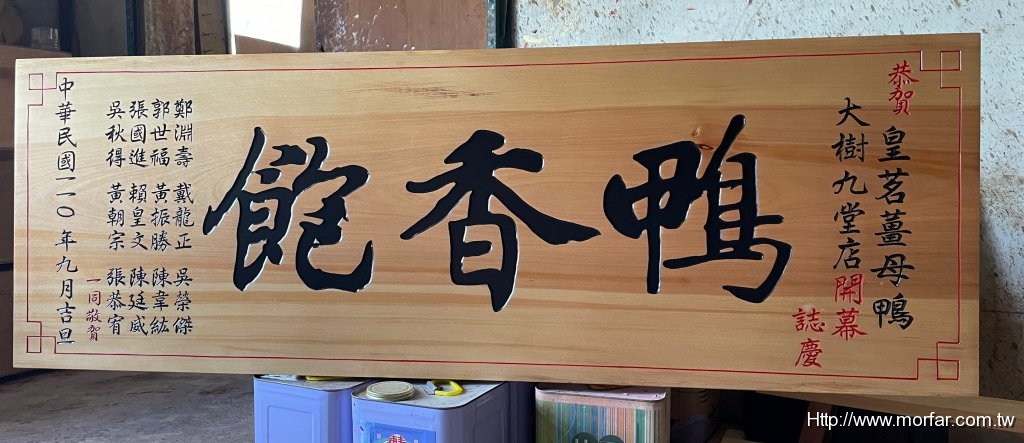 恭賀
皇茗薑母鴨
大樹九堂店開幕
誌慶
鴨香飽
鄭淵壽 戴龍正 吳榮傑
郭世福 黃振勝 陳韋紘
張國進 賴皇文 陳廷威
吳秋得 黃朝宗 張恭宥
一同敬賀
中華民國一一〇年九月吉旦
Http://www.morfar.com.tw